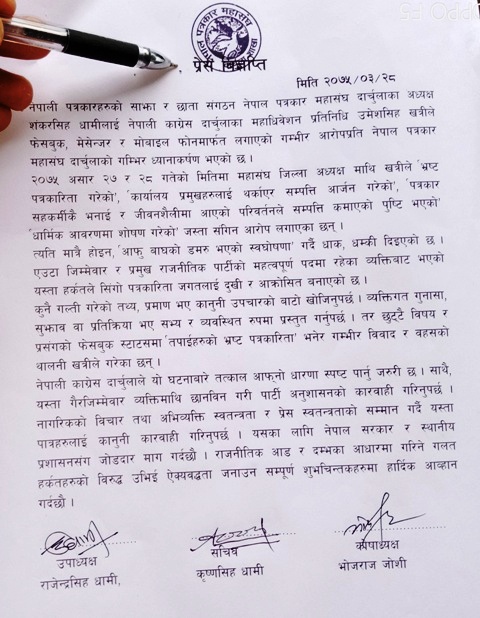 प्रेस विज्ञप्ति
मिति २०७५/०३/२८
नेपाली पत्रकारहरुको साझा र छाता संगठन नेपाल पत्रकार महासंघ दार्चुलाका अध्यक्ष
शंकरसिह धामीलाई नेपाली काग्रेस दार्चुलाका महाधिवेशन प्रतिनिधि उमेशसिह खत्रीले
फेसबुक, मेसेन्जर र मोबाइल फोनमार्फत लगाएको गम्भीर आरोपप्रति नेपाल पत्रकार
महासंघ दार्चुलाको गम्भिर ध्यानाकर्षण भएको छ ।
२०७५ असार २७ र २८ गतेको मितिमा महासंघ जिल्ला अध्यक्ष माथि खत्रीले 'भ्रष्ट
पत्रकारिता गरेको', 'कार्यालय प्रमुखहरुलाई थर्काएर सम्पत्ति आर्जन गरेको', 'पत्रकार
सहकर्मीकै भनाई र जीवनशैलीमा आएको परिवर्तनले सम्पत्ति कमाएको पुष्टि भएको'
'धार्मिक आवरणमा शोषण गरेको' जस्ता संगिन आरोप लगाएका छन् ।
त्यति मात्रै होइन, 'आफु बाघको डमरु भएको स्वघोषणा' गर्दै धाक, धम्की दिइएको छ ।
एउटा जिम्मेवार र प्रमुख राजनीतिक पार्टीको महत्वपूर्ण पदमा रहेका व्यक्तिबाट भएको
यस्ता हर्कतले सिंगो पत्रकारिता जगतलाई दुखी र आक्रोसित बनाएको छ ।
कुनै गल्ती गरेको तथ्य, प्रमाण भए कानुनी उपचारको बाटो खोजिनुपर्छ । व्यक्तिगत गुनासा,
सुझाव वा प्रतिक्रिया भए सभ्य र व्यवस्थित रुपमा प्रस्तुत गर्नुपर्छ । तर छुट्टै विषय र
प्रसंगको फेसबुक स्टाटसमा 'तपाईहरुको भ्रष्ट पत्रकारिता' भनेर गम्भीर विवाद र वहसको
थालनी खत्रीले गरेका छन् ।
नेपाली काग्रेस दार्चुलाले यो घटनाबारे तत्काल आफ्नो धारणा स्पष्ट पार्नु जरुरी छ । साथै,
यस्ता गैरजिम्मेवार व्यक्तिमाथि छानविन गरी पार्टी अनुशासनको कारवाही गरिनुपर्छ ।
नागरिकको विचार तथा अभिव्यक्ति स्वतन्त्रता र प्रेस स्वतन्त्रताको सम्मान गर्दै यस्ता
पात्रहरुलाई कानुनी कारवाही गरिनुपर्छ । यसका लागि नेपाल सरकार र स्थानीय
प्रशासनसंग जोडदार माग गर्दछौ । राजनीतिक आड र दम्भका आधारमा गरिने गलत
हर्कतहरुको विरुद्ध उभिई ऐक्यवद्धता जनाउन सम्पूर्ण शुभचिन्तकहरुमा हार्दिक आव्हान
गर्दछौ ।
उपाध्यक्ष
राजेन्द्रसिह धामी,
सचिव
कृष्णसिह धामी
कोषाध्यक्ष
भोजराज जोशी